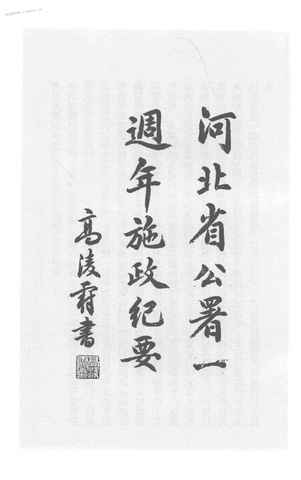 河北省公署一
週年施政紀要
高淩霨書